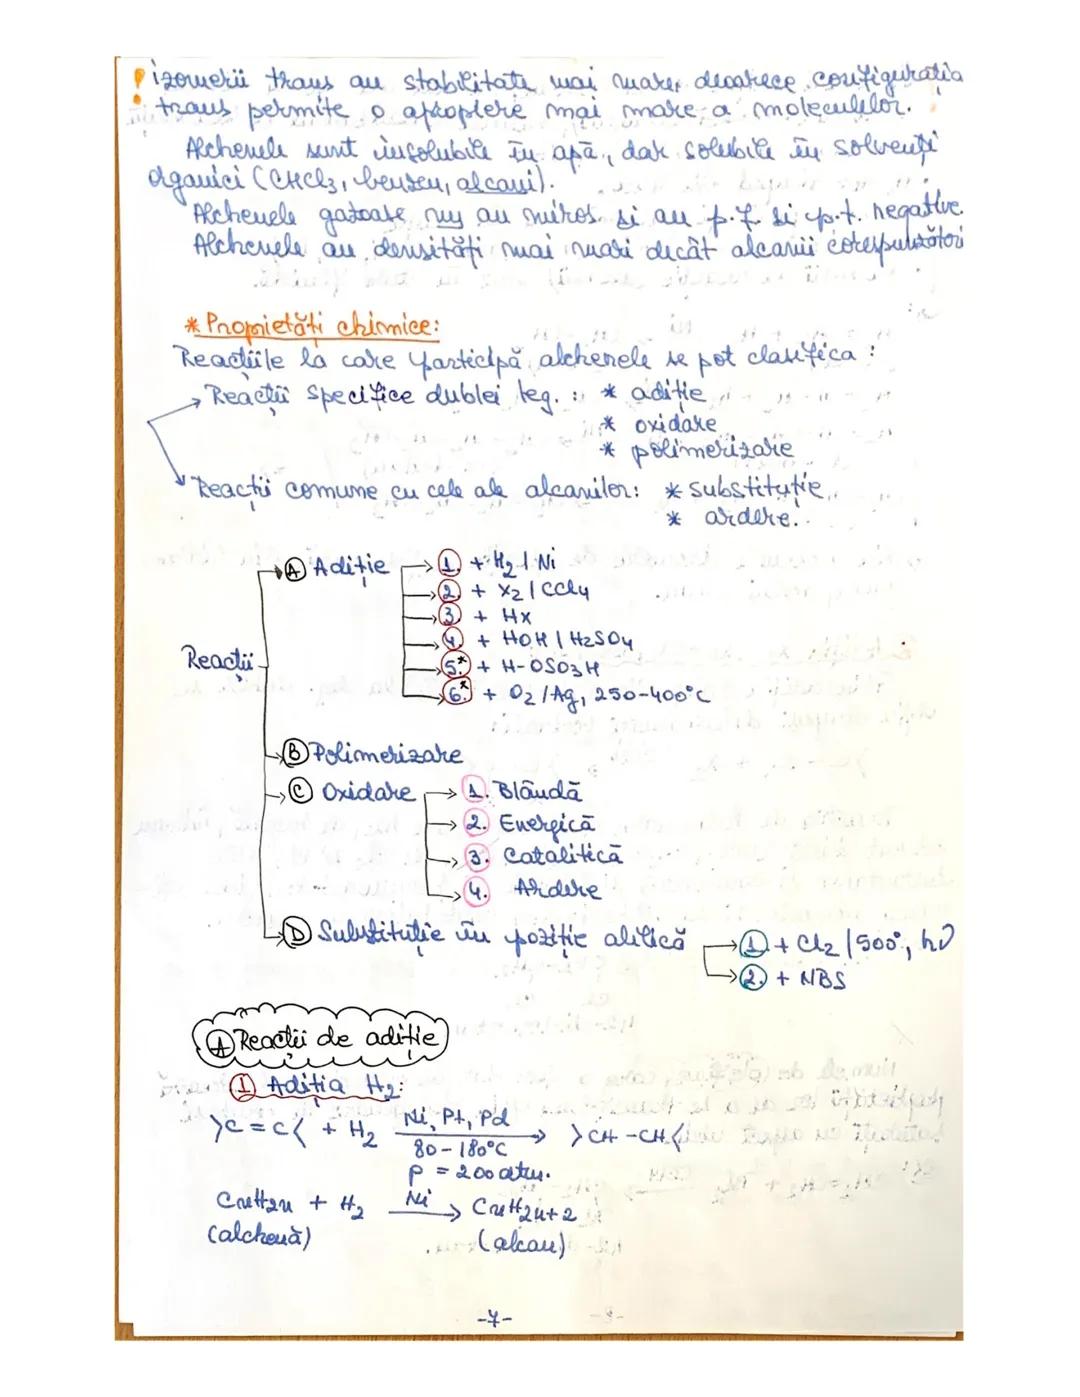 ! izomerii trans au stabilitate mai mare, deoarece configurația
trans permite o apropiere mai mare a moleculelor.
Alchenele sunt insolubile în apă, dar solubile în solvenți
organici (CHCl3, benzen, alcani).
Alchenele gazoase nu au miros și au p.f. și p.t. negative.
Alchenele au densități mai mari decât alcanii corespunzători
* Proprietăți chimice:
Reacțiile la care participă alchenele se pot clasifica:
→ Reacții specifice dublei leg. : * adiție
* oxidare
* polimerizare
Reacții comune cu cele ale alcanilor: * substituție
* ardere.
Reacții
A Adiție → 1. + H2 / Ni
→ 2. + X2 / CCl4
→ 3. + HX
→ 4. + HOH / H2SO4
→ 5.* + H-OSO3H
→ 6.* + O2 / Ag, 250-400°C
→ B Polimerizare
→ C Oxidare → 1. Blândă
→ 2. Energică
→ 3. Catalitică
→ 4. Ardere
→ D Substituție în poziție alilică → 1. + Cl2 / 500°, hν
→ 2. + NBS
A Reacții de adiție
1 Adiția H2:
>C=C< + H2 Ni, Pt, Pd → >CH-CH<
80-180°C
p = 200 atm.
CnH2n + H2 Ni → CnH2n+2
(alchenă) (alcan)
-7-